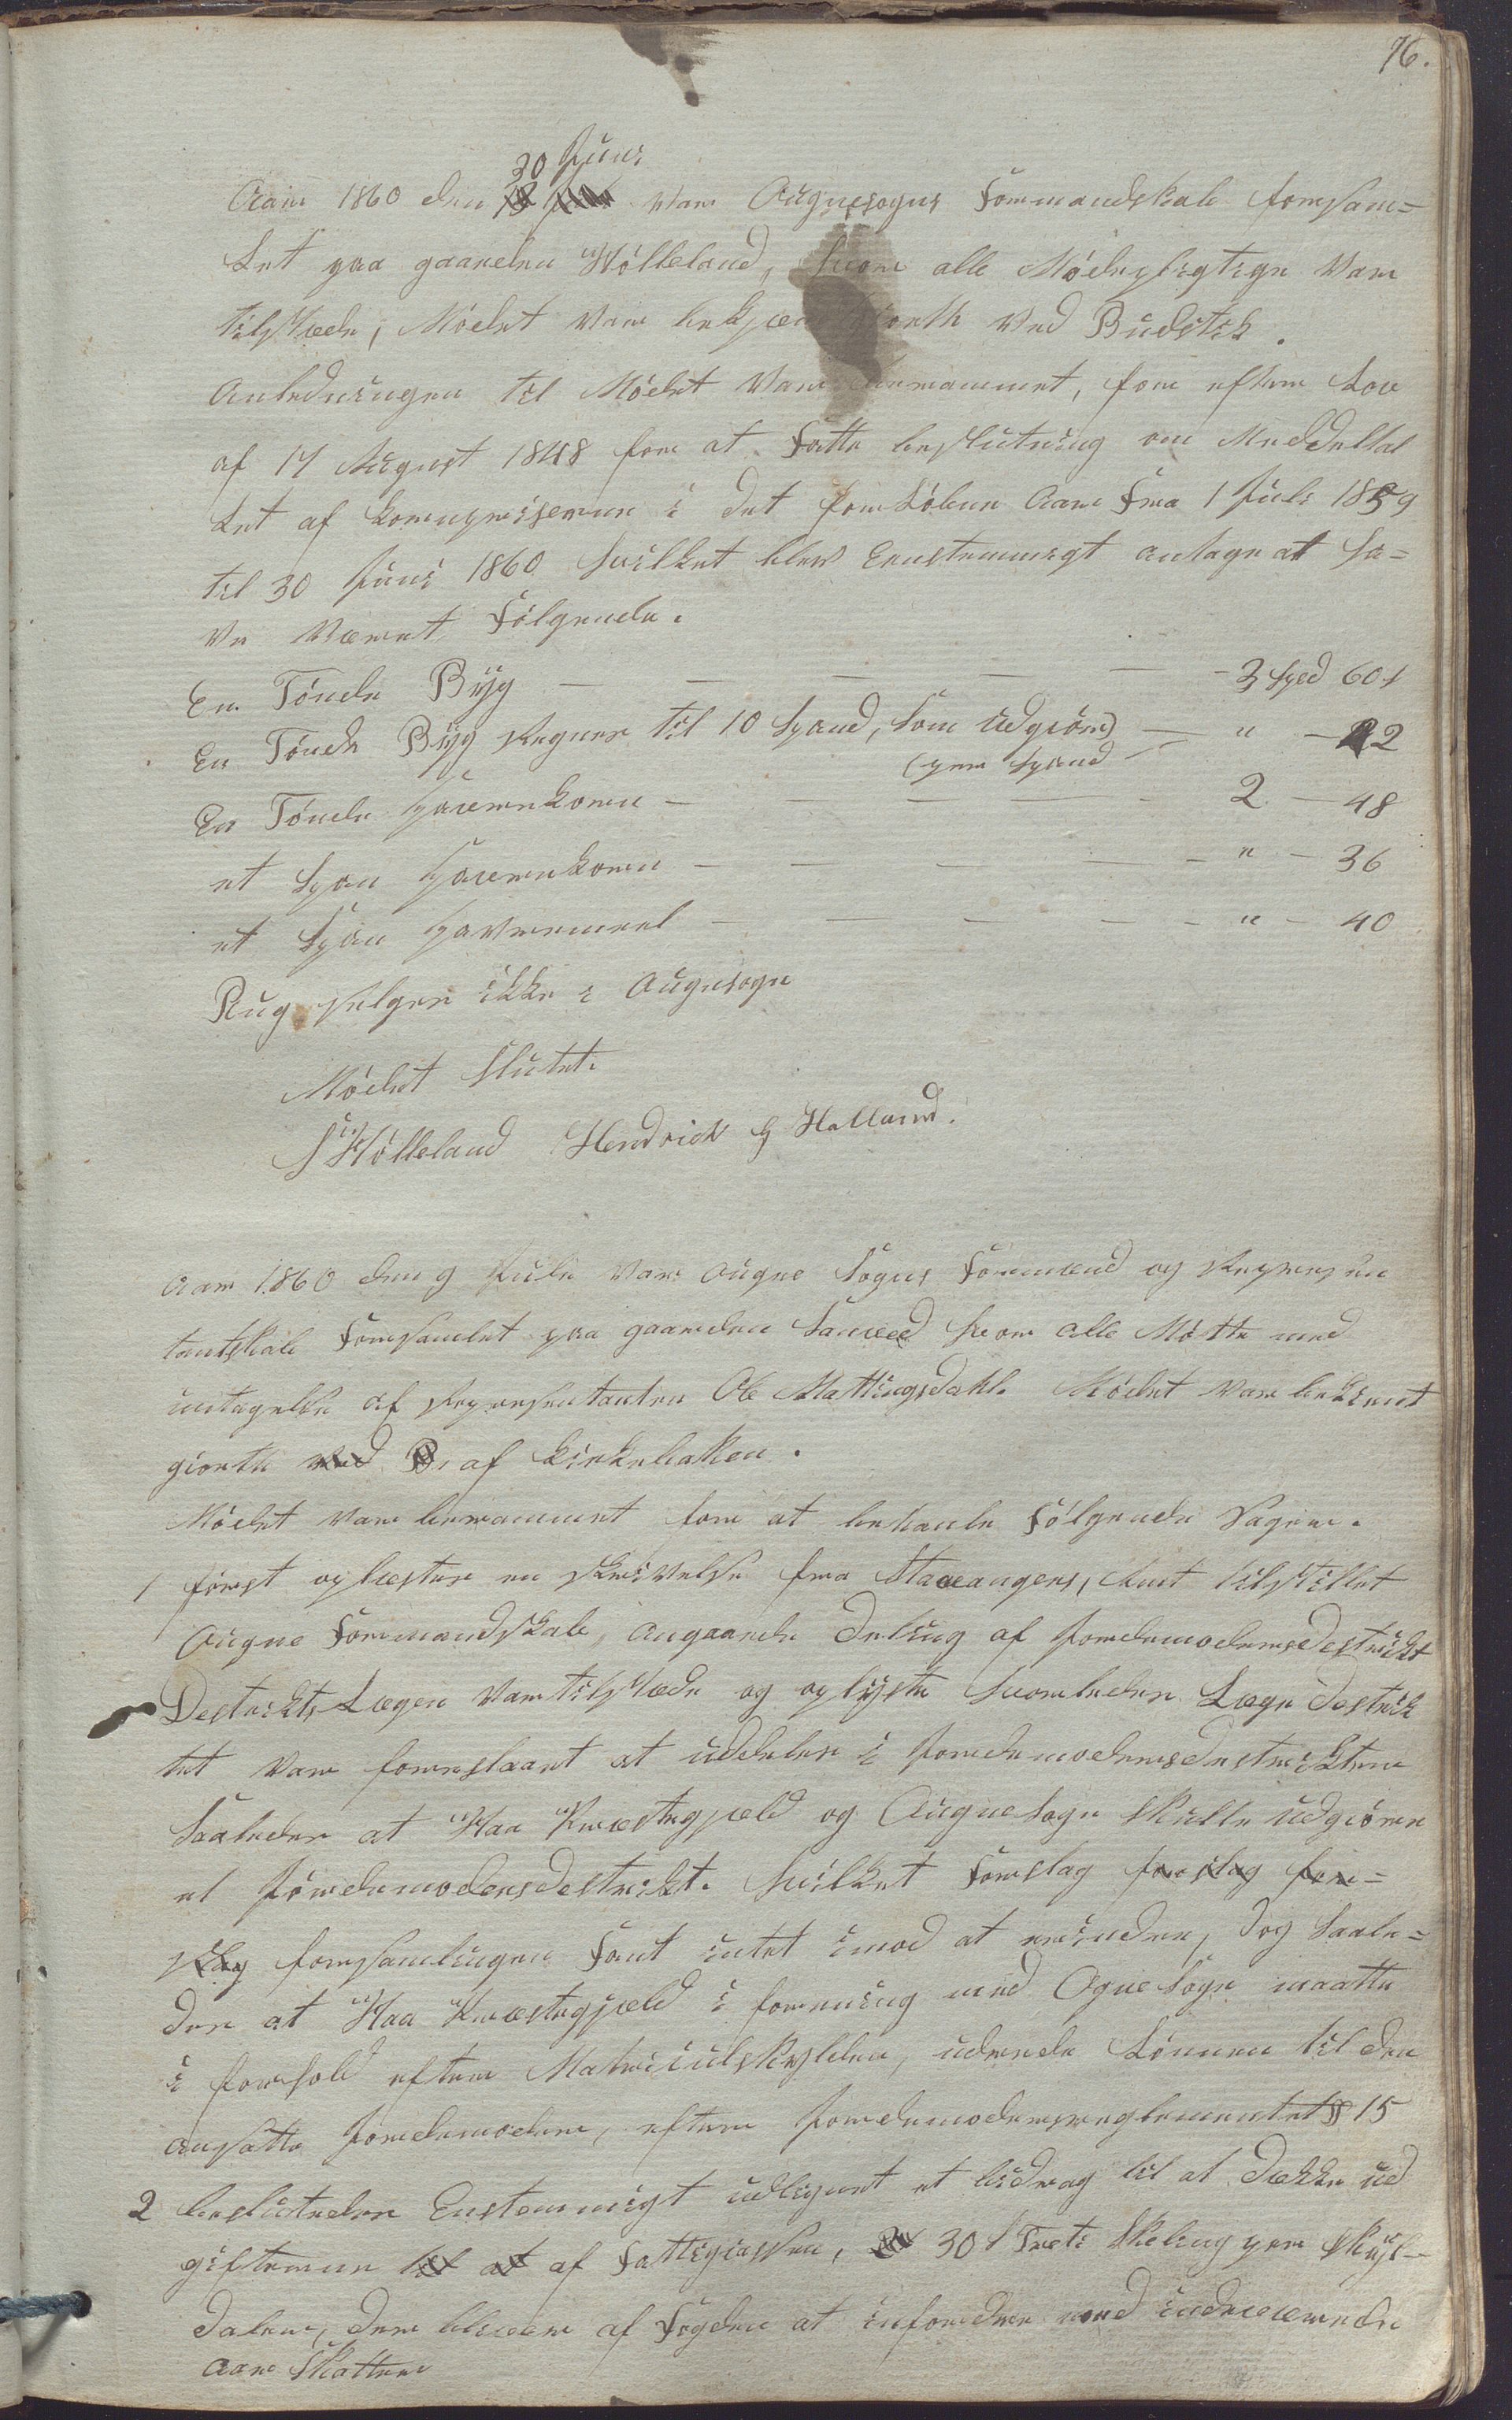 76.
30 Juni
Aar 1860 den var Ougnesogns Formandskab forsam=
let paa gaarden Hölleland, hvor alle Mödepligtige var
tilstæde, Mödet var bekjen giorth ved Budstik.
Anledningen til Mödet var berammet, for efter Lov
af 17 August 1848 for at fatte beslutning om Meddeltal
let af kornpriserne i det forlöbne Aar fra 1 Juli 1859
til 30 Juni 1860 hvilket blev Eenstemmigt antage at ha=
ve været følgende.
En Tönde Byg — — — — — 3 Spd 60 s
En Tönde Byg Regnes til 10 Spand, som udgiör — " — 42
(per Spand
En Tönde haverekorn — — — — 2 — 48
et Span haverekorn — — — — " — 36
et Span havremeel — — — — " — 40
Rug selges ikke i Ougnesogn
Mödet slutet.
S Hölleland Hendrick H Helland.
Aar 1860 den 9 Juli var Ougne Sogns Formænd og Represen
tantskab forsamlet paa gaarden Hanved hvor alle Mötte med
untagelse af Represententen Ole Mattingsdahl. Mödet var bekient
giorth ved B. af kirkebakken.
Mödet var berammet for at behanle fölgende Sager.
1 först oplæstes en skrivelse fra Stavangers, Amt tilstillet
Ougne Formandskab, angaande deling af Jordemodersdestrickt
Destrikts Lægen var tilstæde og oplyste hvorledes Læge destrik
tet var foreslaaet at uddeles i Jordemodersdestrikter
Saaledes at Haa Præstegjæld og Ougne Sogn skulle udgiöre
et Jördemodersdestrikt. hvilket forslag forslag for=
slag forsamlingen fant intet imod at erindre, dog saale=
des at Haa Præstegjæld i forening med Ogne Sogn maatte
i forhold efter Matriculskylden, udrede Lönnen til den
ansatte Jordemoder, efter Jordemodersreglementet § 15
2 besluttedes Enstemmigt udlignet et bidrag til at dække ud
gifterne til at af Fattigkassen, 30 s Treti Skeling per skyl-
daler, der bliver af Fogden at infordre med inderværende
aars Skatter